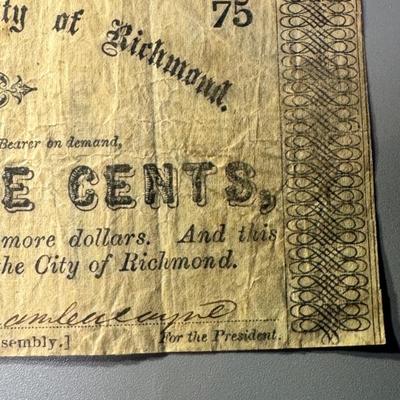 ty of Richmond.
75
Bearer on demand,
E CENTS,
more dollars. And this
the City of Richmond.
For the President.
sembly.]